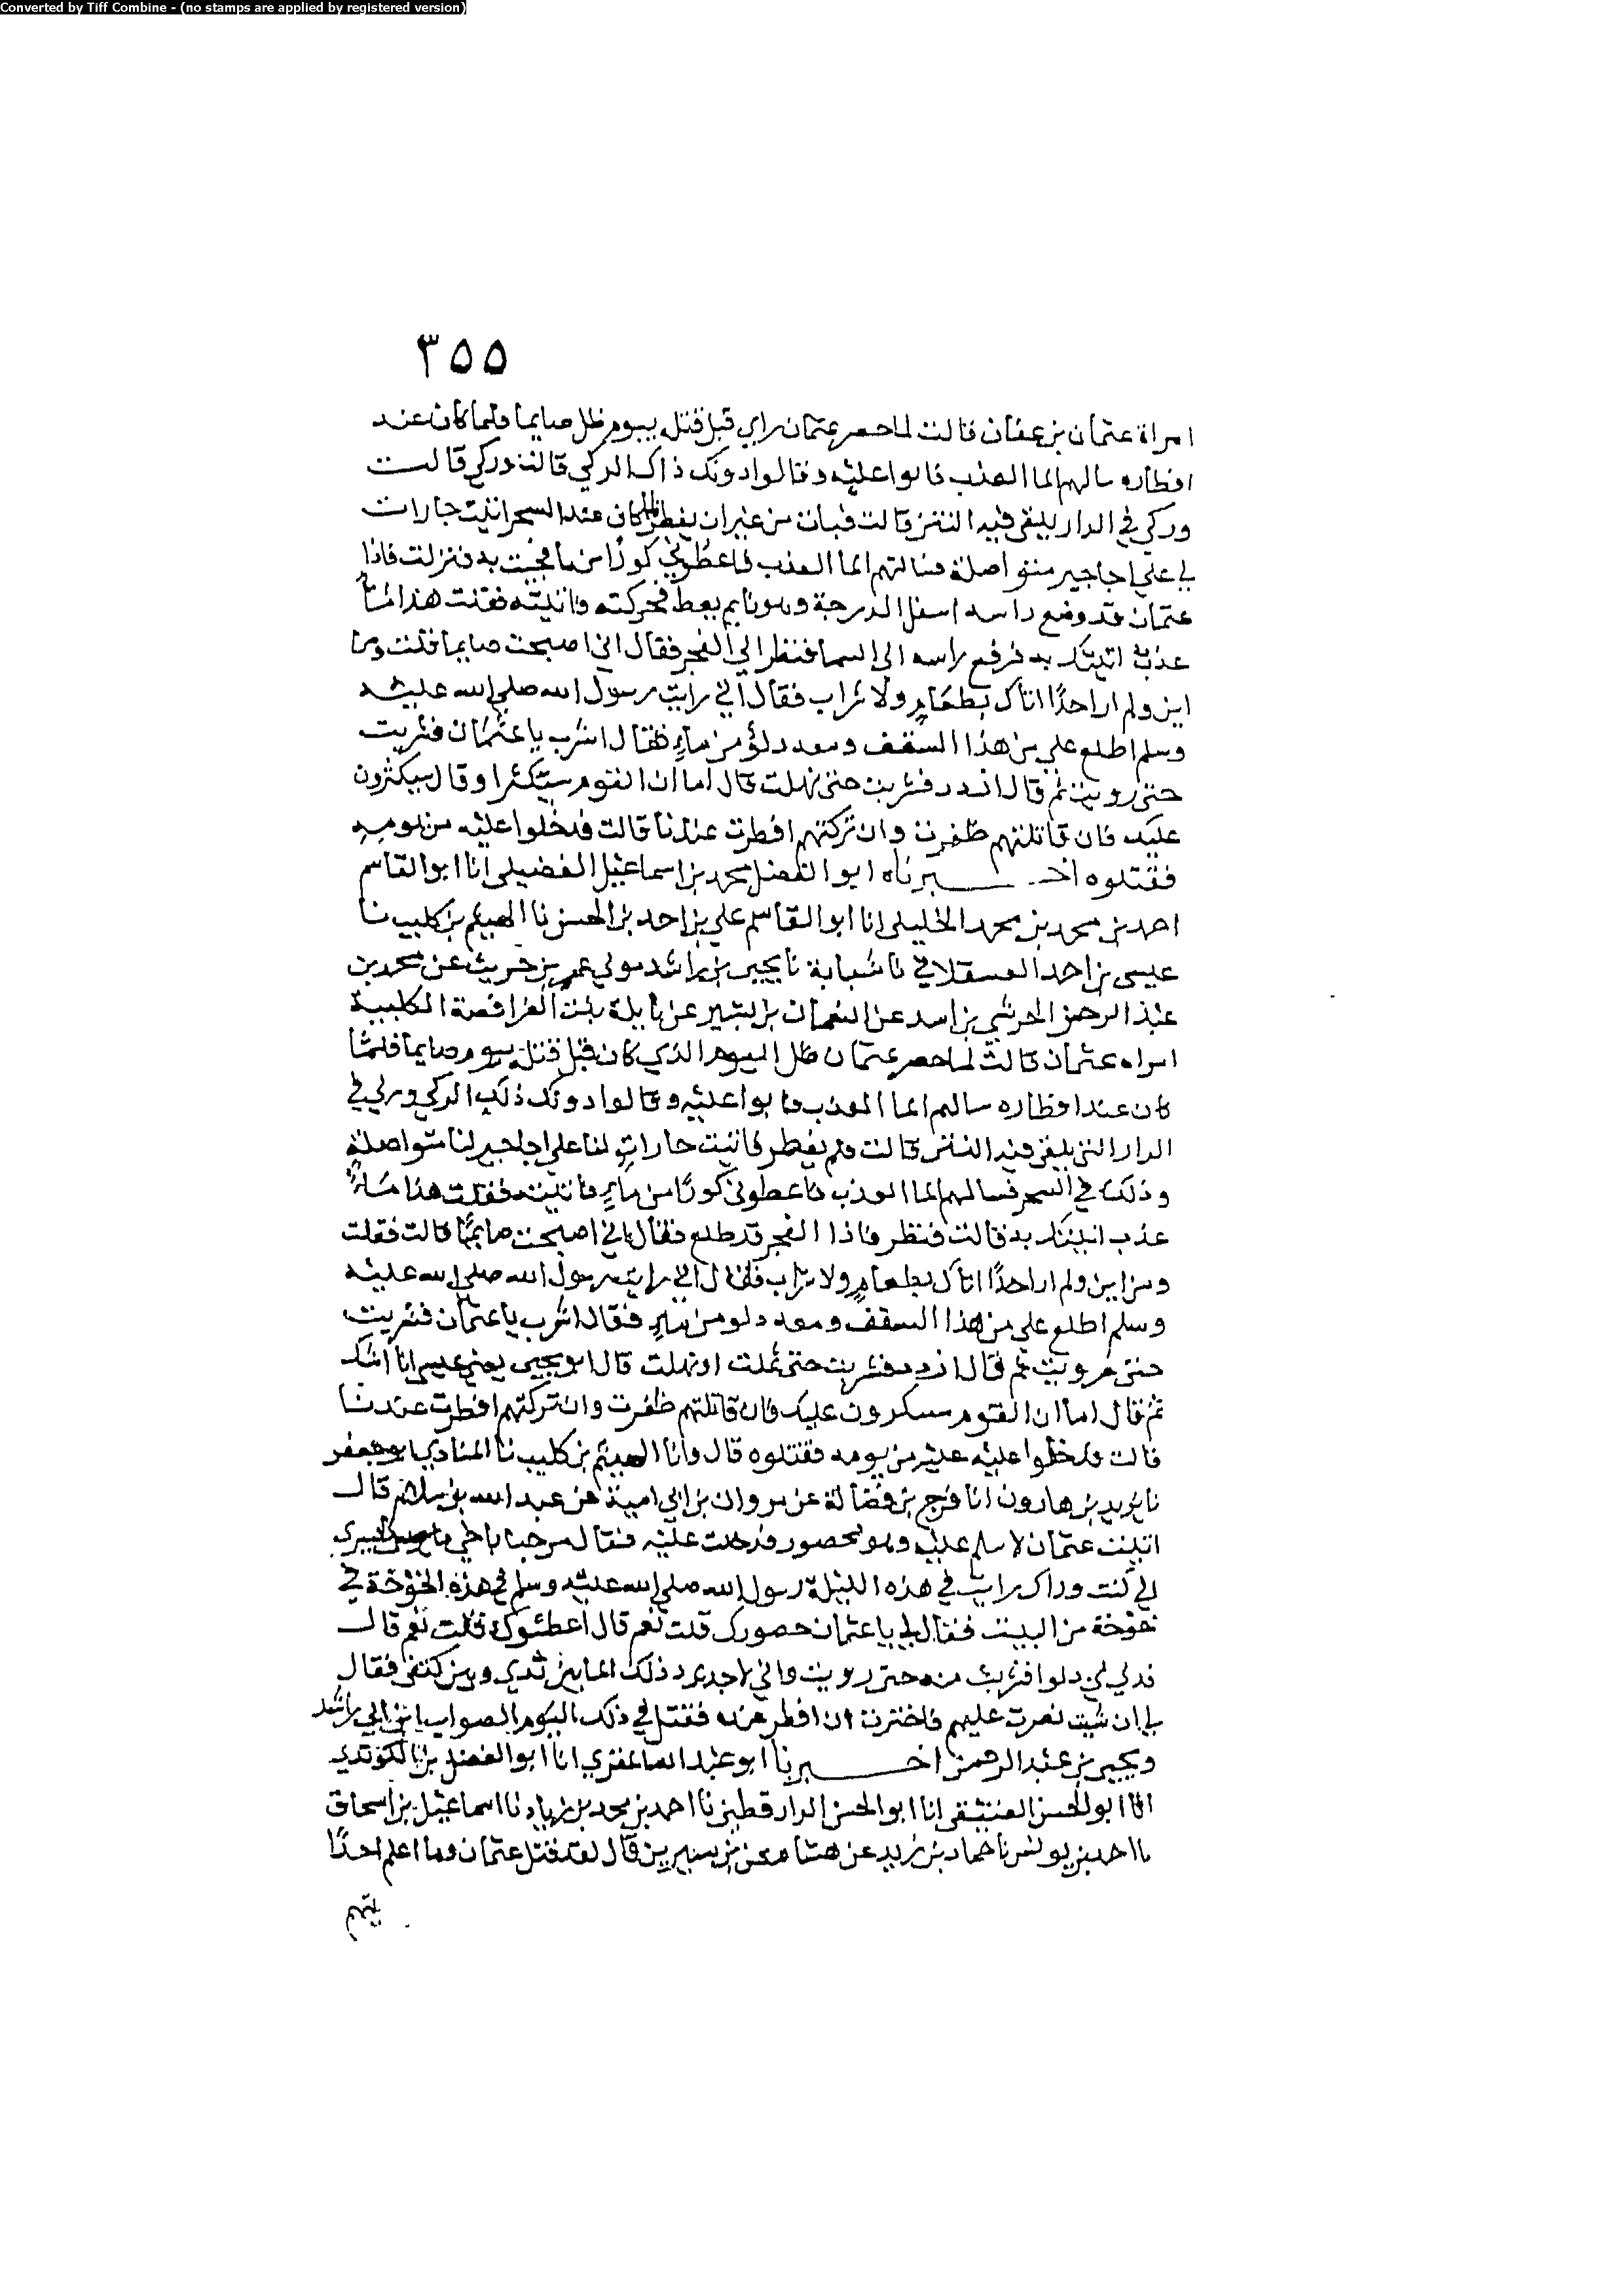 Converted by Tiff Combine - (no stamps are applied by registered version)
٣٥٥
امراة عثمان بن عفان قالت لما حصر عثمان راي قبل قتله بيوم ظل صايما فلما كان عند
افطاره سالهم الما العذب فابوا عليه وقالوا دونك ذاك الركي قالت وركي قالت
وركي في الدار يلقى فيه النتن قالت فبات من غير ان يفطر فلما كان عند السحر اتيت جارات
لي على اجاجير متواصلة فسالتهم الما العذب فاعطوني كوزا من ما فجيت به فنزلت فاذا
عثمان قد وضع راسه اسفل الدرجة وهو نايم يغط فحركته فانتبه فقلت هذا ماء
عذب اتيتك به فرفع راسه الى السما فنظر الي الفجر فقال اني اصبحت صايما فقلت ومن
اين ولم ار احدًا اتاك بطعامٍ ولا شراب فقال اني رايت رسول الله صلى الله عليه
وسلم اطلع علي من هذا السقف ومعه دلؤ من ماءٍ فقال اشرب يا عثمان فشربت
حتى رويت ثم قال ازدد فشربت حتى نهلت قال اما ان القوم سيتكثرا وقال سيكثرون
عليك فان قاتلتهم ظفرت وان تركتهم افطرت عندنا قالت فدخلوا عليه من يومه
فقتلوه اخبرناه ابوا الفضل محمد بن اسماعيل الفضيلي انا ابوا القاسم
احمد بن محمد بن محمد الخليلي انا ابوا القاسم علي بن احمد بن الحسن نا الهيثم بن كليب نا
عيسى بن احمد العسقلاني نا شبابة نا يحيى بن راشد مولي عمر بن حريث عن محمد بن
عبد الرحمن الحرشي بن اسد عن النعمان بن البشير عن نايلة بنت الفرافصة الكلبية
امراه عثمان قالت لما حصر عثمان ظل اليوم الذي كان قبل قتله بيوم صايما فلما
كان عند افطاره سالهم الما العذب فابوا عليه وقالوا دونك ذلك الركي وركي في
الدار التي يلقى فيه النتن قالت فلم يفطر فاتيت جاراتٍ لنا على اجاجير لنا متواصلة
وذلك في السحر فسالهم الما العذب فاعطوني كوزًا من ماءٍ فاتيته فقلت هذا ماءٌ
عذب اتيتك به قالت فنظر فاذا الفجر قد طلع فقال اني اصبحت صايمًا قالت فقلت
ومن اين ولم ار احدًا اتاك بطعامٍ ولا شراب فقال اني رايت رسول الله صلى الله عليه
وسلم اطلع علي من هذا السقف ومعه دلو من ماءٍ فقال اشرب يا عثمان فشربت
حتى رويت ثم قال ازدد فشربت حتى ثملت او نهلت قال ابو يحيى يعني عيسى انا اشك
ثم قال اما ان القوم سيكرون عليك فان قاتلتهم ظفرت وان تركتهم افطرت عندنا
قالت فدخلوا عليه عليه من يومه فقتلوه قال وانا الهيثم بن كليب نا المنادي ابو جعفر
نا يزيد بن هارون انا فرج بن فضالة عن مروان بن ابي امية عن عبد الله بن سلام قال
اتيت عثمان لاسلم عليه وهو محصور فدخلت عليه فقال مرحبا باخي
اني كنت وراك رايت في هذه الليلة رسول الله صلى الله عليه وسلم في هذه الخوخة في
خوخة من البيت فقال لي يا عثمان حصورك قلت نعم قال اعطشوك قلت نعم قال
فدلي لي دلوا فشربت منه حتى رويت واني لاجد برد ذلك الما بين ثدي وبين كتفي فقال
لي ان شيت نصرت عليهم فاخترت ان افطر عنده فقتل في ذلك اليوم الصواب ابن ابي راشد
ويحيى بن عبد الرحمن اخبرنا ابو عبد الله المقري انا ابوا الفضل بن الكوندي
انا ابو الحسن العتيقي انا ابوا الحسن الدارقطني نا احمد بن محمد بن زياد نا اسماعيل بن اسحاق
نا احمد بن يونس نا حماد بن زيد عن هشام عن بن سيرين قال لقد قتل عثمان وما اعلم احدًا
يتهم